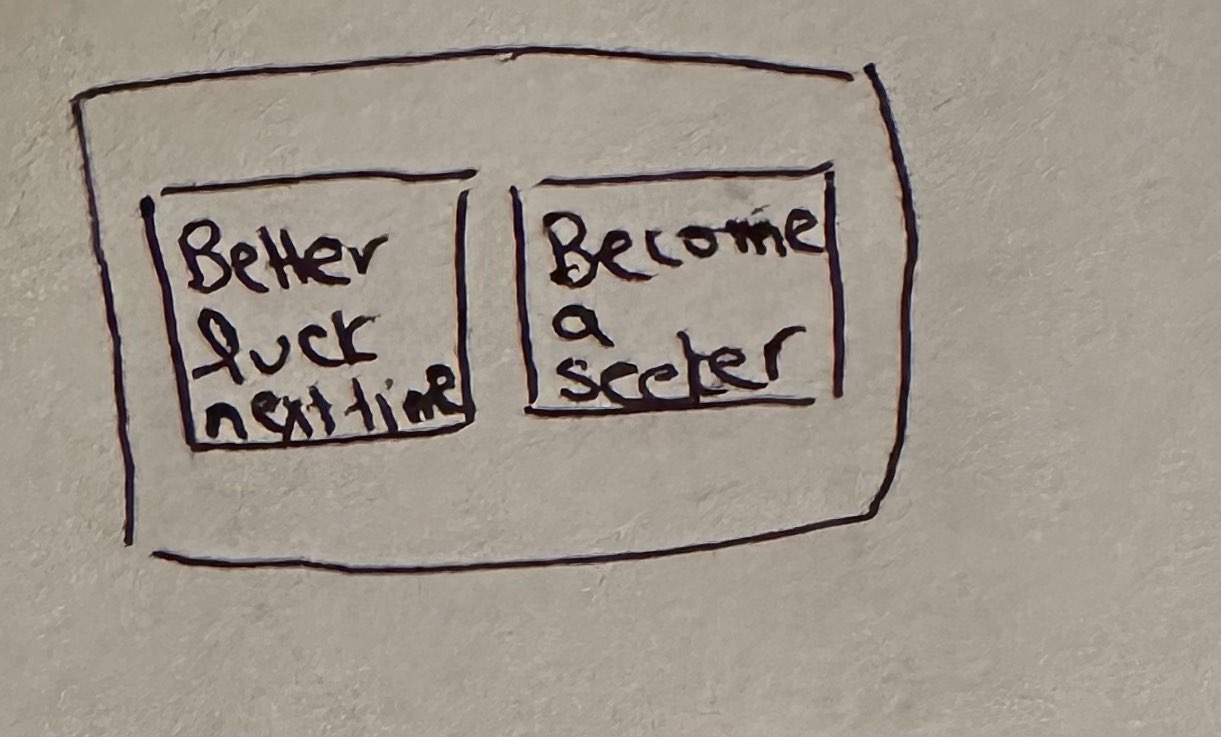 Better
luck
next time
Become
a
seeker